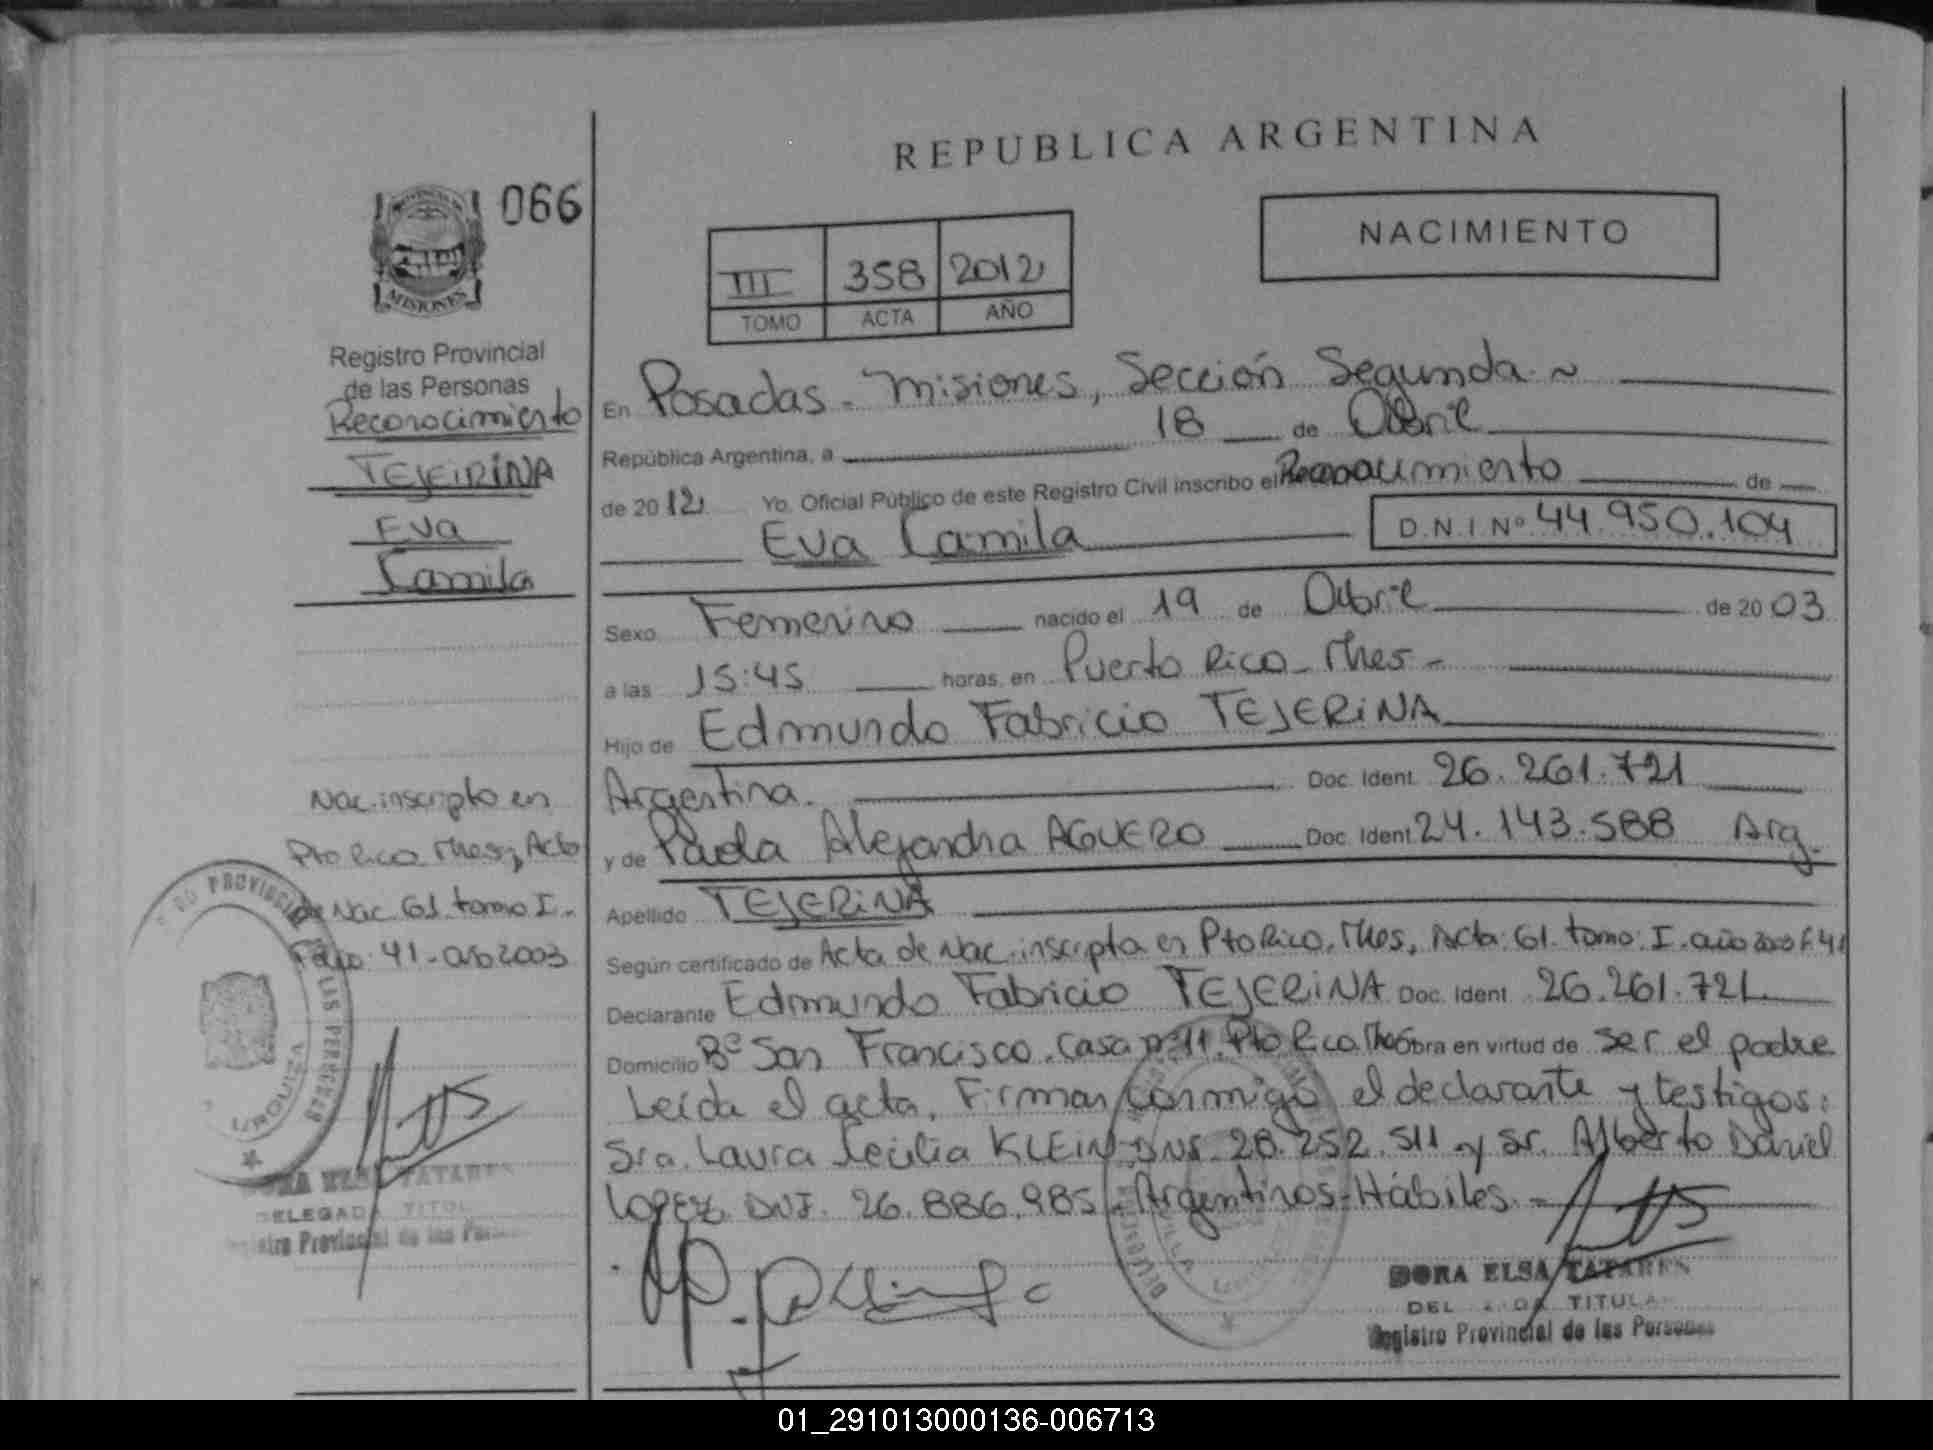 REPUBLICA ARGENTINA
066
NACIMIENTO
III 358 2012
TOMO ACTA AÑO
MISIONES
Registro Provincial
de las Personas
Reconocimiento
TEJEIRINA
Eva
Camila
En Posadas - Misiones, Sección Segunda ~
República Argentina, a 18 de Abril
de 2012 Yo, Oficial Público de este Registro Civil inscribo el Reconocimiento de
Eva Camila D.N.I. Nº 44.950.104
Sexo Femenino nacido el 19 de Abril de 2003
a las 15:45 horas, en Puerto Rico - Mnes -
Hijo de Edmundo Fabricio TEJERINA
Argentina. Doc. Ident. 26.261.721
y de Paola Alejandra AGUERO Doc. Ident 24.143.588 Arg.
Apellido TEJERINA
Según certificado de Acta de Nac. inscripta en Pto Rico, Mnes, Acta: 61. tomo. I. año 2003 F. 41
Declarante Edmundo Fabricio TEJERINA Doc. Ident. 26.261.721
Domicilio Bº San Francisco. Casa nº 11. Pto Rico. Mnes Obra en virtud de ser el padre
Leída el acta, Firman conmigo el declarante y testigos:
Sra. Laura Cecilia KLEIN DNI. 28.252.511 y Sr. Alberto Daniel
LOPEZ DNI. 26.886.985 - Argentinos - Hábiles. -
Nac. inscripto en
Pto Rico Mnes, Acta
de Nac 61. tomo I -
Folio: 41 - año 2003
PROVINCIAL
LAS PERSONAS
URQUIZA
DORA ELSA TATARES
DELEGADA TITULAR
Registro Provincial de las Personas
DORA ELSA TATARES
DELEGADA TITULAR
Registro Provincial de las Personas
01_291013000136-006713